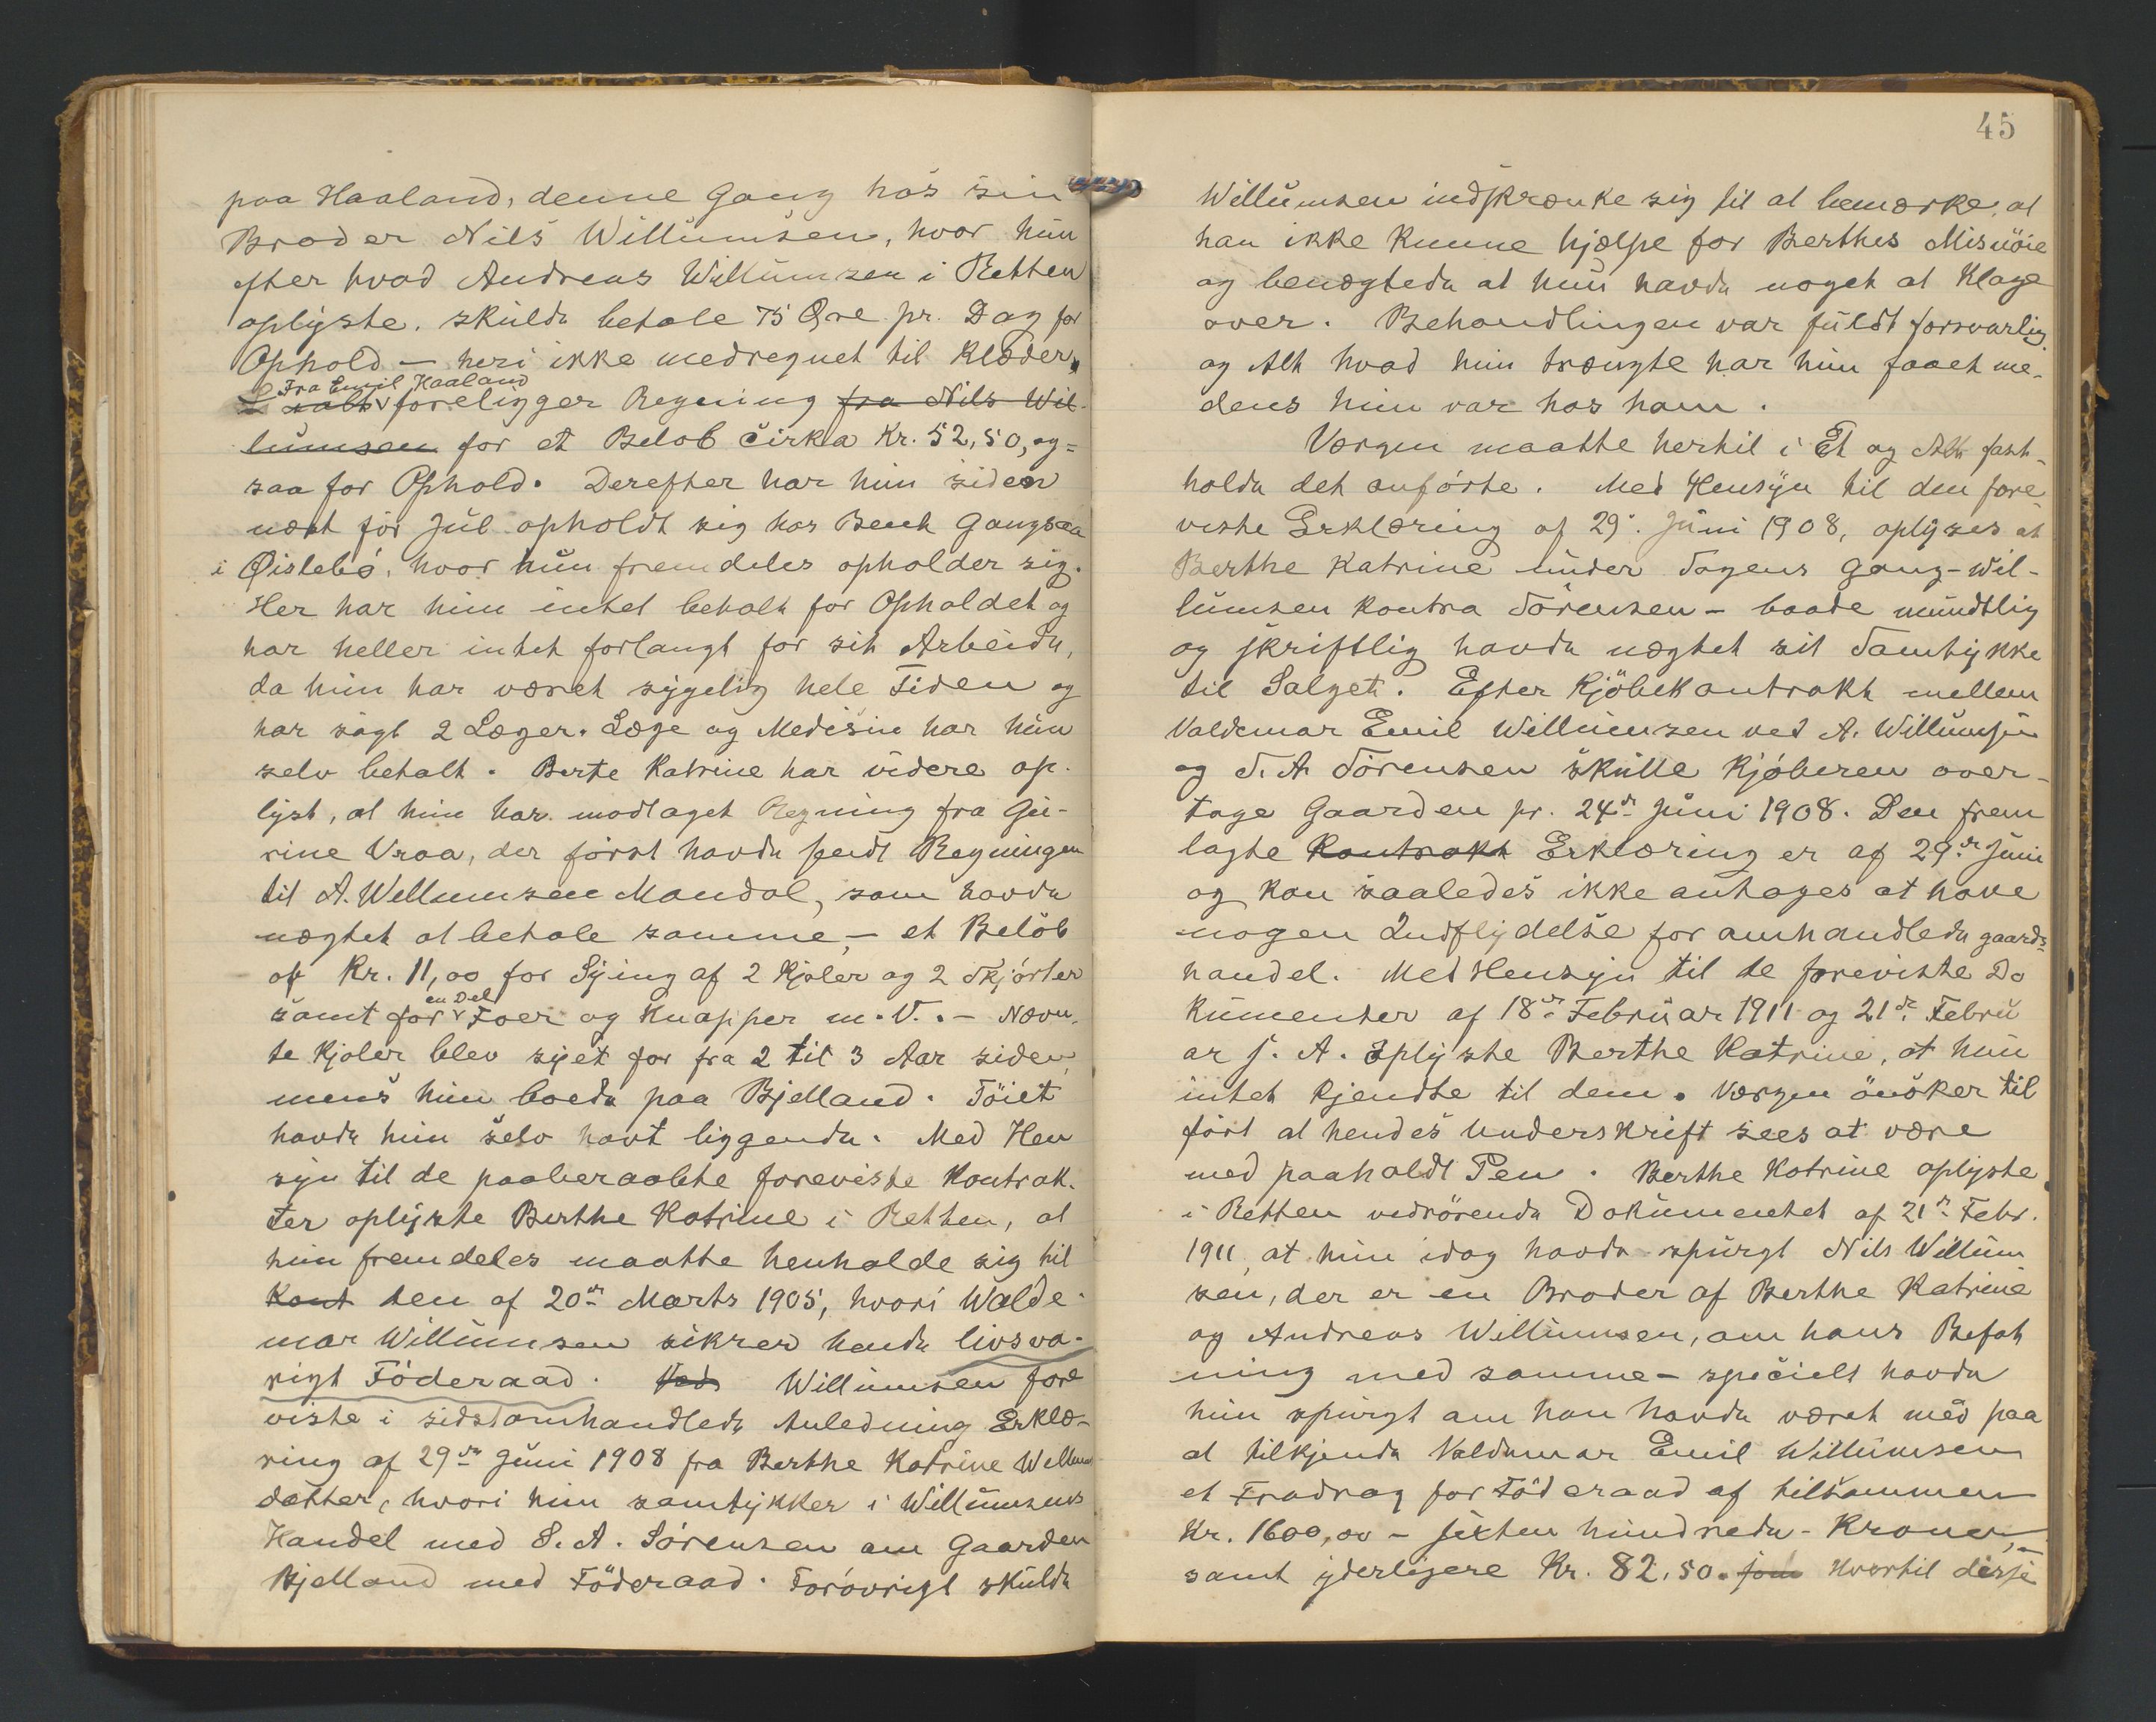 paa Haaland, denne Gang hos sin
Broder Nils Willumsen, hvor hun
efter hvad Andreas Willumsen i Retten
oplyste, skulde betale 75 Øre pr. Dag for
Ophold – heri ikke medregnet til Klæder.
Fra Emil Haaland
foreligger Regning fra Nils Wil-
lumsen for et Beløb cirka Kr. 52,50, og=
saa for Ophold. Derefter har hun siden
næst før Jul opholdt sig hos Bent Gangsaa
i Øislebø, hvor hun fremdeles opholder sig.
Her har hun intet betalt for Opholdet og
har heller intet forlangt for sit Arbeide,
da hun har været sygelig hele Tiden og
har søgt 2 Læger. Læge og Medisin har hun
selv betalt. Berte Katrine har videre op-
lyst, at hun har modtaget Regning fra Gu-
rine Vraa, der først havde sendt Regningen
til A. Willumsen Mandal, som havde
nægtet at betale samme, – et Beløb
af Kr. 11,00 for Sying af 2 Kjoler og 2 Skjørter
en Del
samt for Foer og Knapper m. V. – Nævn-
te Kjoler blev syet for fra 2 til 3 Aar siden,
mens hun boede paa Bjelland. Töiet
havde hun selv havt liggende. Med Hen
syn til de paaberaabte foreviste Kontrak-
ter oplyste Berthe Katrine i Retten, at
hun fremdeles maatte henholde sig til
Kont den af 20de Marts 1905, hvori Walde-
mar Willumsen sikrer hende livsva-
rigt Föderaad. Ved Willumsen fore
viste i sidstomhandlede Anledning Erklæ-
ring af 29de Juni 1908 fra Berthe Katrine Willums
datter, hvori hun samtykker i Willumsens
Handel med S. A. Sörensen om Gaarden
Bjelland med Föderaad. Forövrigt skulde
45
Willumsen indskrænke sig til at bemærke, at
han ikke kunne hjælpe for Berthes Misnöie
og benægtede at hun havde noget at klage
over. Behandlingen var fuldt forsvarlig
og Alt hvad hun trængte har hun faaet me-
dens hun var hos ham.
Værgen maatte hertil i Et og Alt fast-
holde det anförte. Med Hensyn til den fore
viste Erklæring af 29. Juni 1908, oplyses at
Berthe Katrine under Sagens Gang – Wil-
lumsen kontra Sörensen – baade mundtlig
og skriftlig havde nægtet sit Samtykke
til Salget. Efter Kjöbekontrakt mellem
Valdemar Emil Willumsen ved A. Willumsen
og S. A. Sörensen skulle Kjöberen over-
tage Gaarden pr. 24de Juni 1908. Den frem
lagte Kontrakt Erklæring er af 29de Juni
og kan saaledes ikke antages at have
nogen Indflydelse for omhandlede gaards-
handel. Med Hensyn til de foreviste Do
kumenter af 18de Februar 1911 og 21de Febru
ar s. A. oplyste Berthe Katrine, at hun
intet kjendte til dem. Værgen önsker til
fört at hendes Underskrift sees at være
med paaholdt Pen. Berthe Katrine oplyste
i Retten vedrörende Dokumentet af 21de Febr.
1911, at hun idag havde spurgt Nils Willum
sen, der er en Broder af Berthe Katrine
og Andreas Willumsen, om hans Befat
ning med samme – specielt havde
hun spurgt om han havde været med paa
at tilkjende Valdemar Emil Willumsen
et Fradrag for Föderaad af tilsammen
Kr. 1600,00 – sexten hundrede – Kroner,
samt yderligere Kr. 82,50. som Hvortil disse